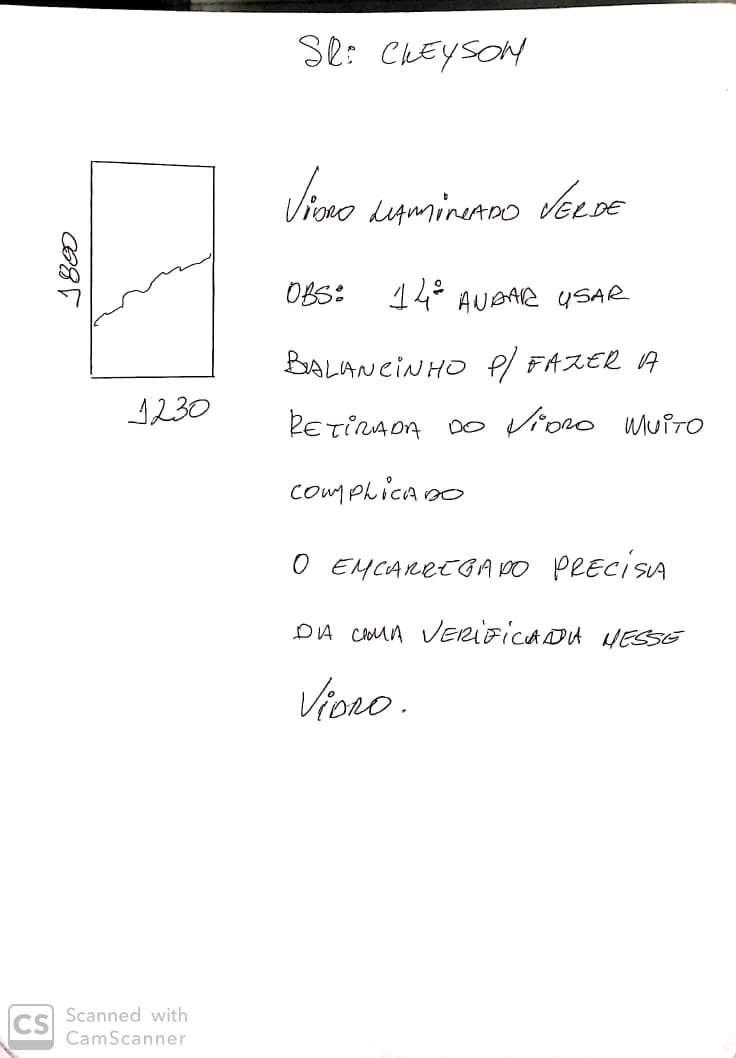 SR: CLEYSON
VIDRO LAMINADO VERDE
1800
OBS: 14º ANDAR USAR
BALANCINHO P/ FAZER A
1230
RETIRADA DO VIDRO MUITO
COMPLICADO
O ENCARREGADO PRECISA
DA UMA VERIFICADA NESSE
VIDRO.
CS Scanned with
CamScanner